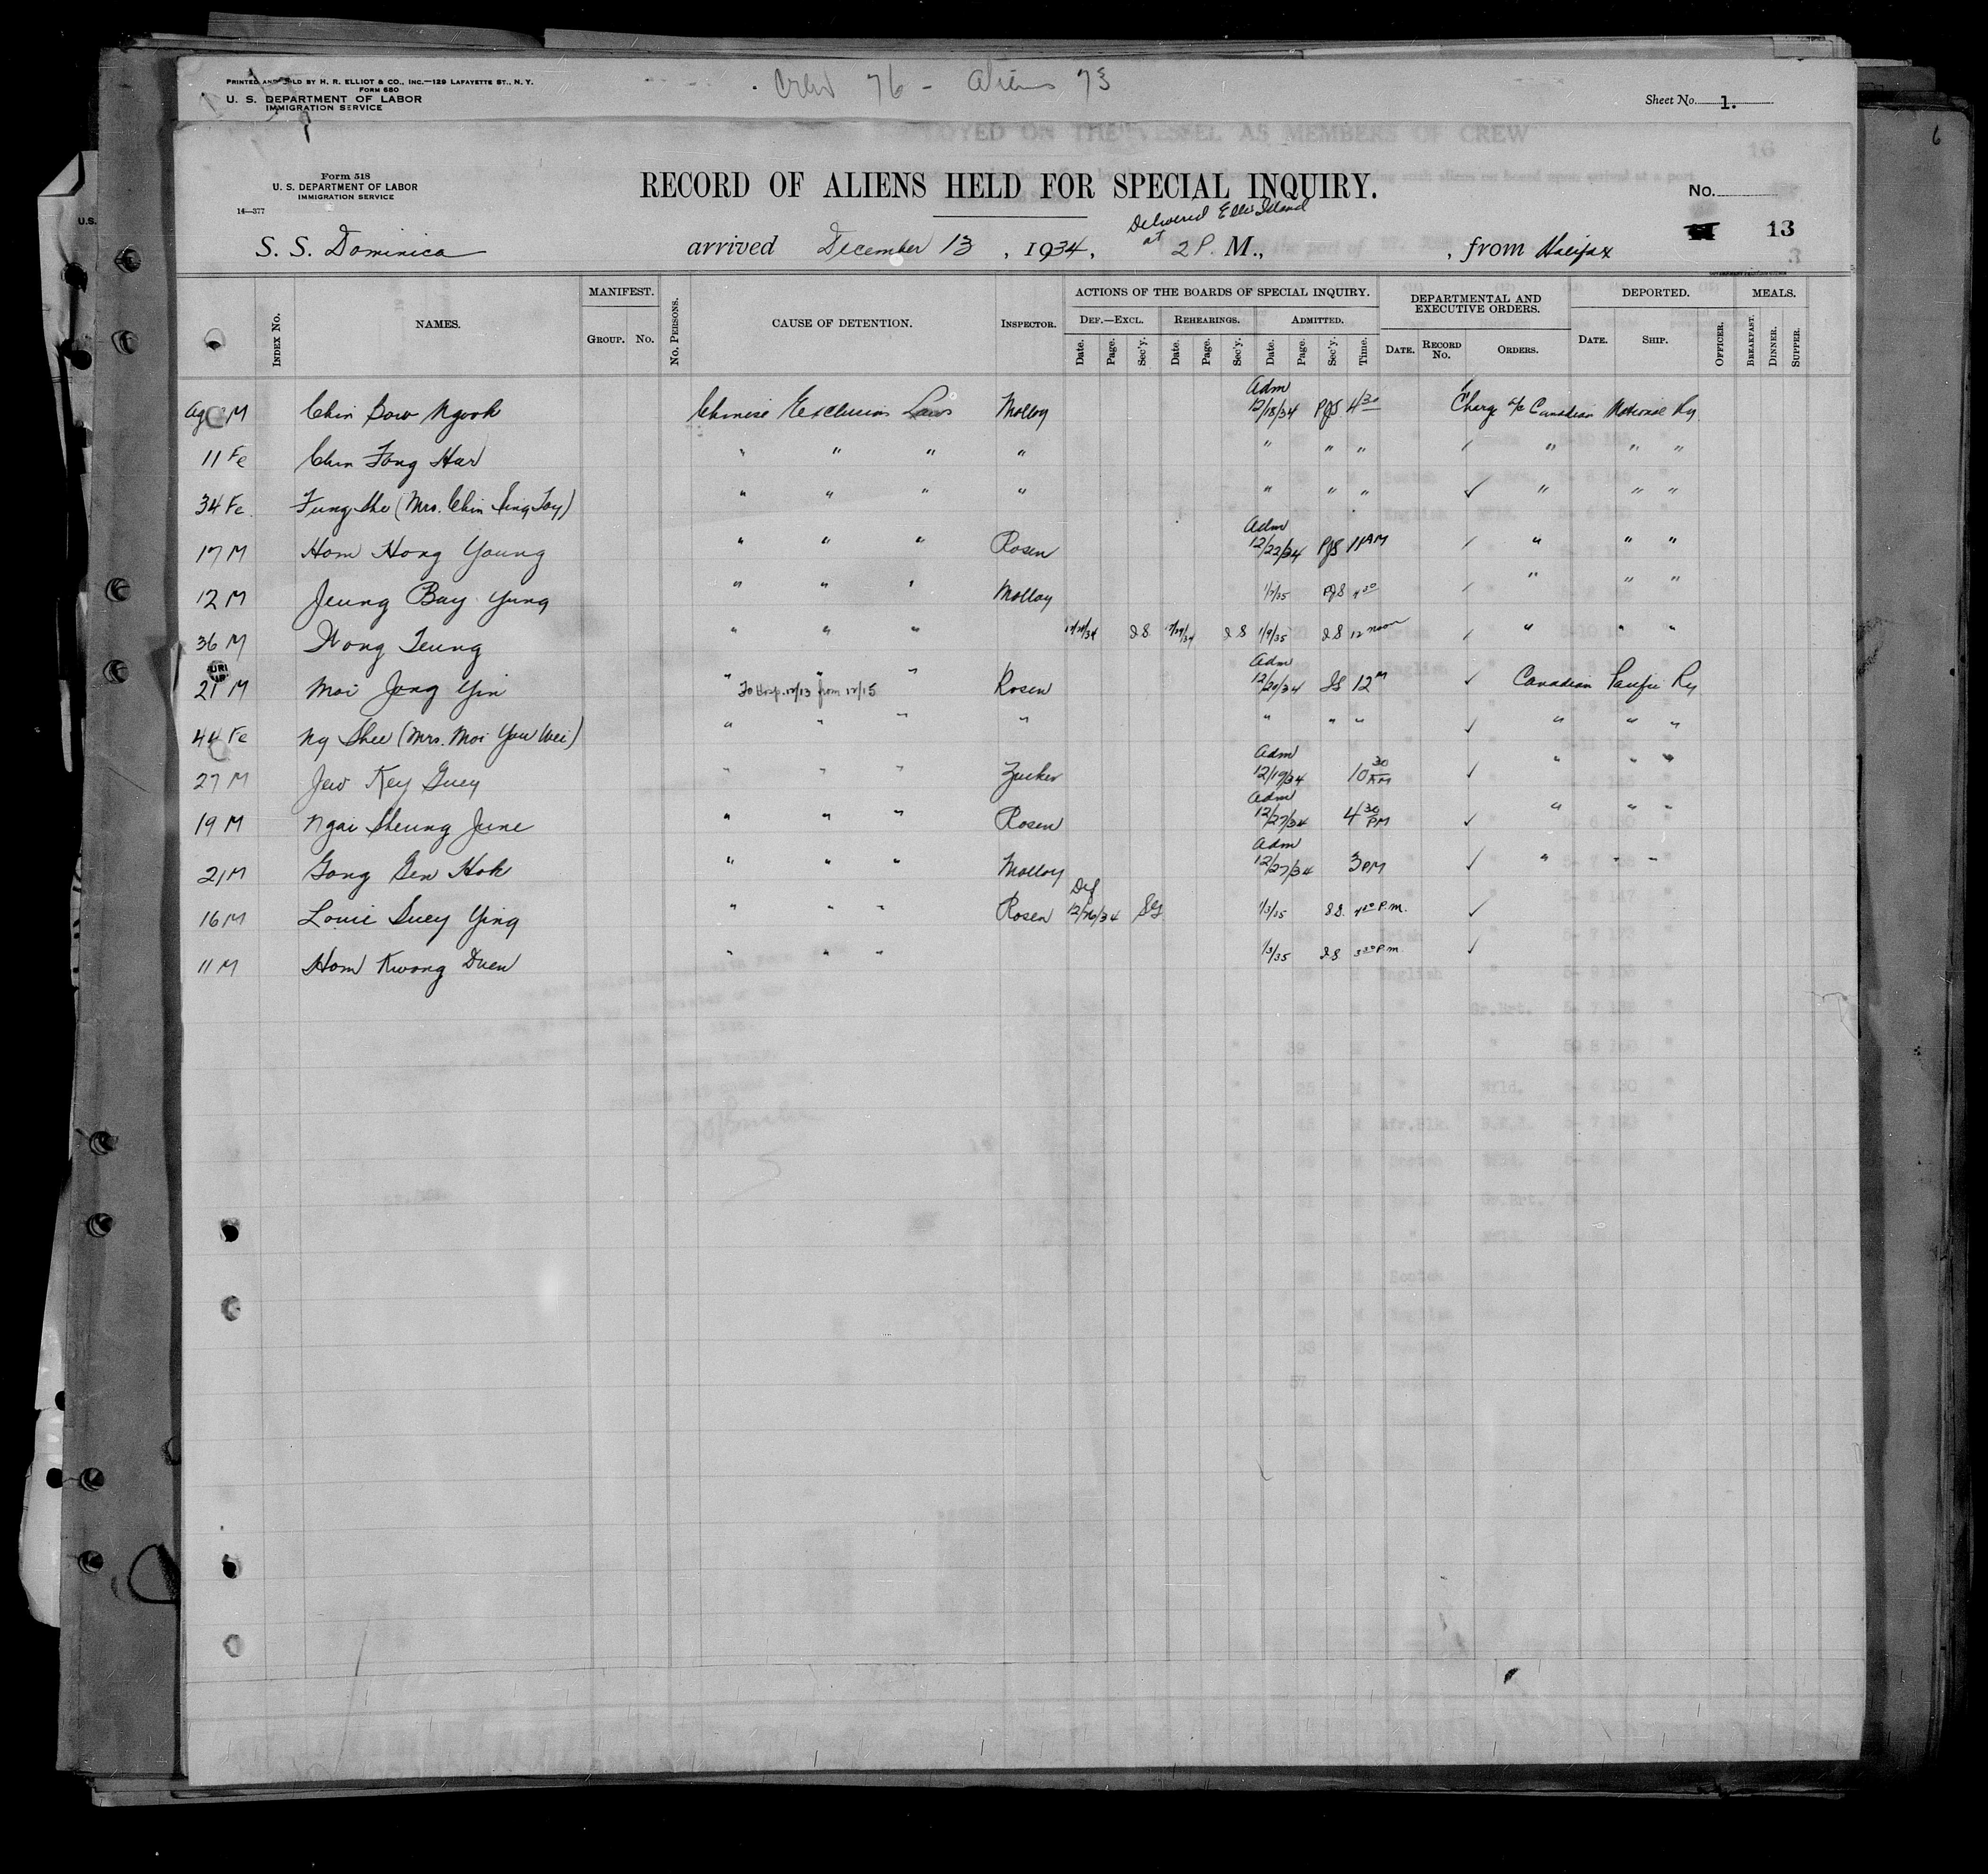 Crew 76 - Aliens 73
PRINTED AND SOLD BY H. R. ELLIOT & CO., INC.—129 LAFAYETTE ST., N. Y.
FORM 680
U. S. DEPARTMENT OF LABOR
IMMIGRATION SERVICE
Sheet No. 1.
6
Form 518
U. S. DEPARTMENT OF LABOR
IMMIGRATION SERVICE
14—377
RECORD OF ALIENS HELD FOR SPECIAL INQUIRY.
No.
13
Delivered Ellis Island
S. S. Dominica arrived December 13, 1934, at 2 P. M., from Halifax
INDEX No. NAMES. MANIFEST. GROUP. No. No. PERSONS. CAUSE OF DETENTION. INSPECTOR. ACTIONS OF THE BOARDS OF SPECIAL INQUIRY. DEPARTMENTAL AND EXECUTIVE ORDERS. DEPORTED. MEALS.
DEF.—EXCL. REHEARINGS. ADMITTED.
Date. Page. Sec'y. Date. Page. Sec'y. Date. Page. Sec'y. Time. DATE. RECORD No. ORDERS. DATE. SHIP. OFFICER. BREAKFAST. DINNER. SUPPER.
M Chin Bow Ngook Chinese Exclusion Laws Molloy Adm 12/18/34 PJS 4 30 Charge a/c Canadian National Ry.
11 Fe Chin Fong Har " " " " " " " " " "
34 Fe Fung She (Mrs. Chin Sing Toy) " " " " " " " ✓ " " "
17 M Hom Hong Young " " " Rosen Adm 12/22/34 PJS 11 AM " " "
12 M Jeung Bay Yung " " " Molloy PJS " " "
36 M Teung " " " 1/9/35 12 noon " " "
21 M Moi Jong Yin " " " To Hosp. 12/13 from 12/15 Rosen Adm 12/20/34 12 M ✓ Canadian Pacific Ry
44 Fe Ng Shee (Mrs. Moi You Wei) " " " " " " " ✓ " " "
27 M Jew Key Guey " " " Zucker Adm 12/19/34 10 30 AM ✓ " " "
19 M Ngai Sheung June " " " Rosen Adm 12/27/34 4 30 PM ✓ " " "
21 M Gong Gen Hok " " " Molloy Adm 12/27/34 3 PM ✓ " " "
16 M Louie Suey Ying " " " Rosen Def 12/20/34 1/3/35 P.M. ✓
11 M Hom Kwong Duen " " " 1/3/35 3 30 P.M. ✓